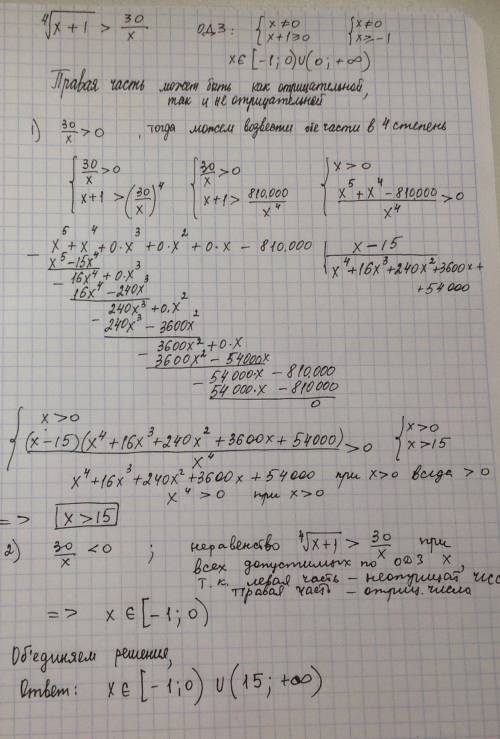 ⁴√(x+1) > 30/x     ОДЗ: { x≠0  x+1≥0     { x≠0  x≥-1
x∈[-1;0)∪(0;+∞)
Правая часть может быть как отрицательной,
так и не отрицательной
1) 30/x >0 , тогда можем возвести обе части в 4 степень
{ 30/x >0  x+1 > (30/x)⁴     { 30/x >0  x+1 > 810,000/x⁴     { x>0  (x⁵+x⁴-810,000)/x⁴ >0
- x⁵ + x⁴ + 0·x³ + 0·x² + 0·x - 810,000 | x-15
x⁵-15x⁴ | x⁴+16x³+240x²+3600x+
- 16x⁴+0·x³ +54000
16x⁴-240x³
- 240x³+0·x²
240x³-3600x²
- 3600x²+0·x
3600x²-54000x
- 54000·x-810,000
54000·x-810000
0
{ x>0  (x-15)(x⁴+16x³+240x²+3600x+54000)/x⁴ >0     { x>0  x>15
x⁴+16x³+240x²+3600x+54000 при x>0 всегда >0
x⁴>0 при x>0
=> x>15
2) 30/x <0 ; неравенство ⁴√(x+1) > 30/x при
всех допустимых по ОДЗ x,
т.к. левая часть – неотрицат. чис
правая часть – отриц. числа
=> x∈[-1;0)
Об'единяем решения,
Ответ: x∈[-1;0)∪(15;+∞)